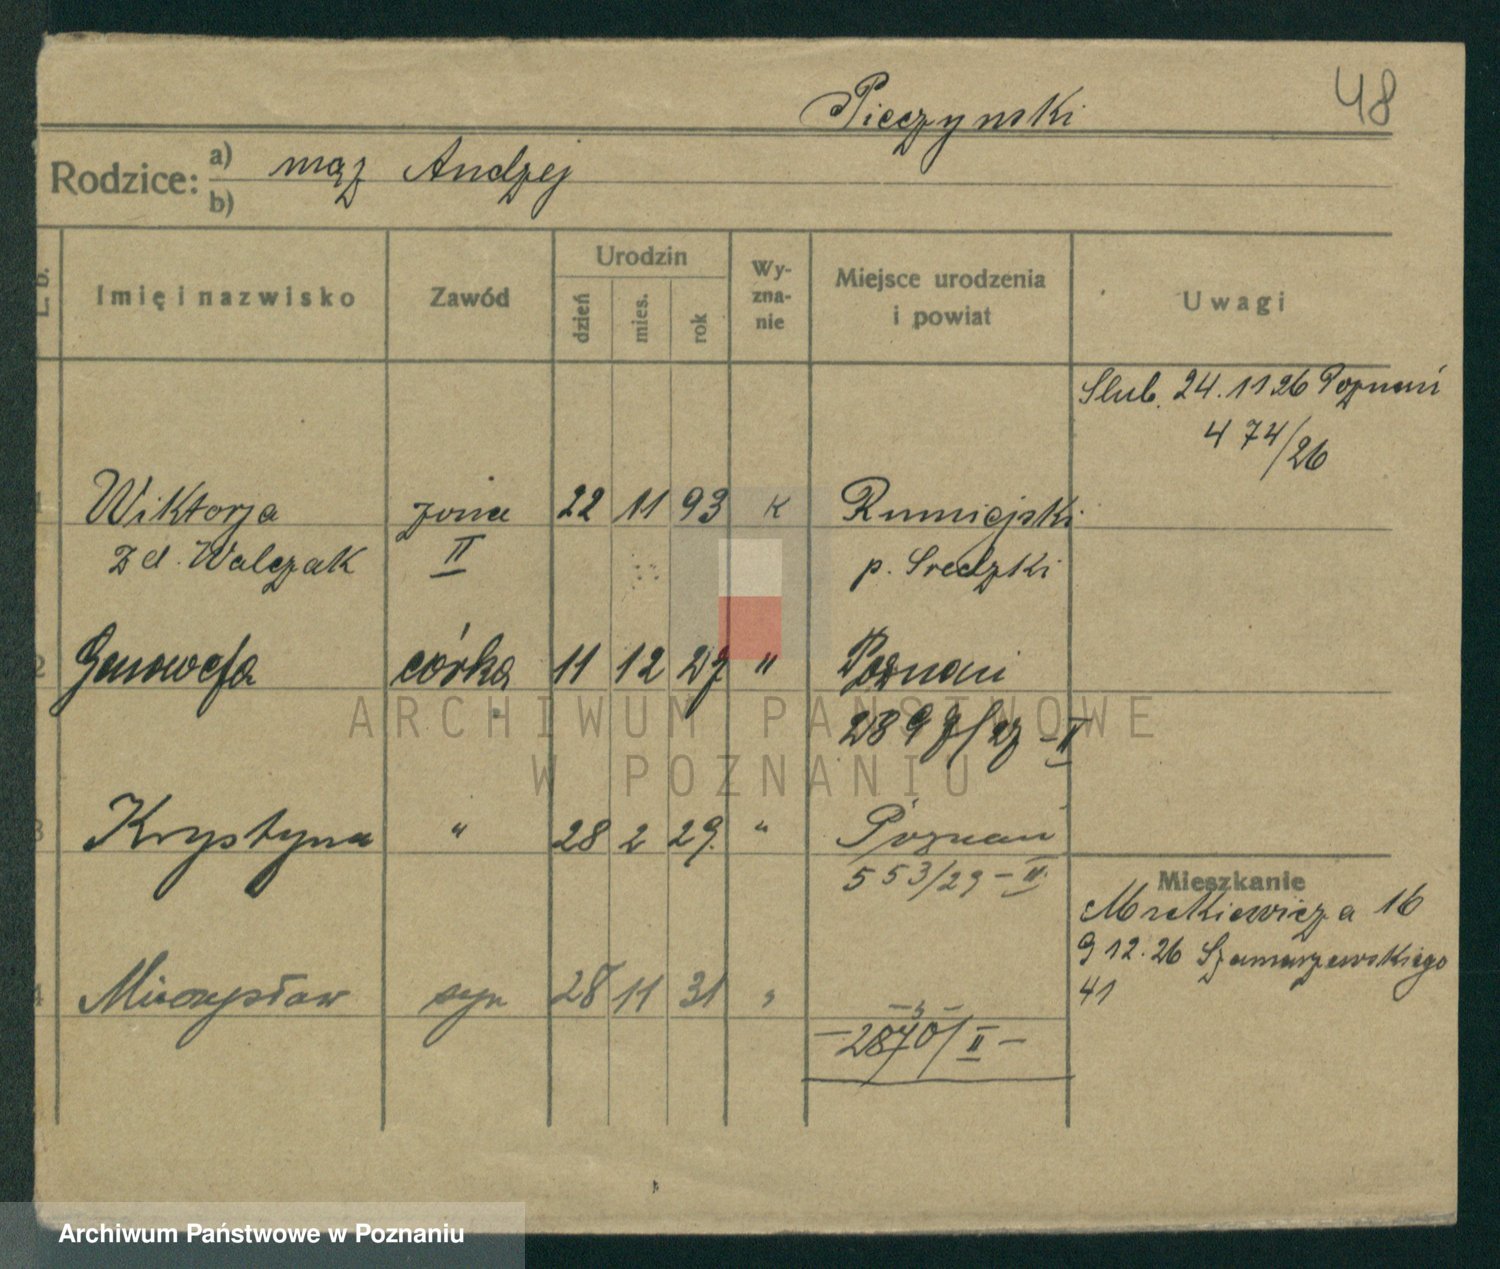 48
Pieczynski
Rodzice: a) mąż Andrzej
b)
L. B. Imię i nazwisko Zawód Urodzin dzień mies. rok Wyznanie Miejsce urodzenia i powiat Uwagi
Slub. 24.11 26 Poznań
474/26
1 Wiktorja żona 22 11 93 k Rumiejski
zd. Walczak II p. Sredzki
2 Genowefa córka 11 12 27 " Poznań
2899/27 - II
3 Krystyna " 28 2 29. " Poznań
553/29 - II
Mieszkanie
16
9 12. 26 Szamarzewskiego
41
4 Mieczysław syn 28 11 31 " - " -
- 2870/II -
ARCHIWUM PAŃSTWOWE
W POZNANIU
Archiwum Państwowe w Poznaniu